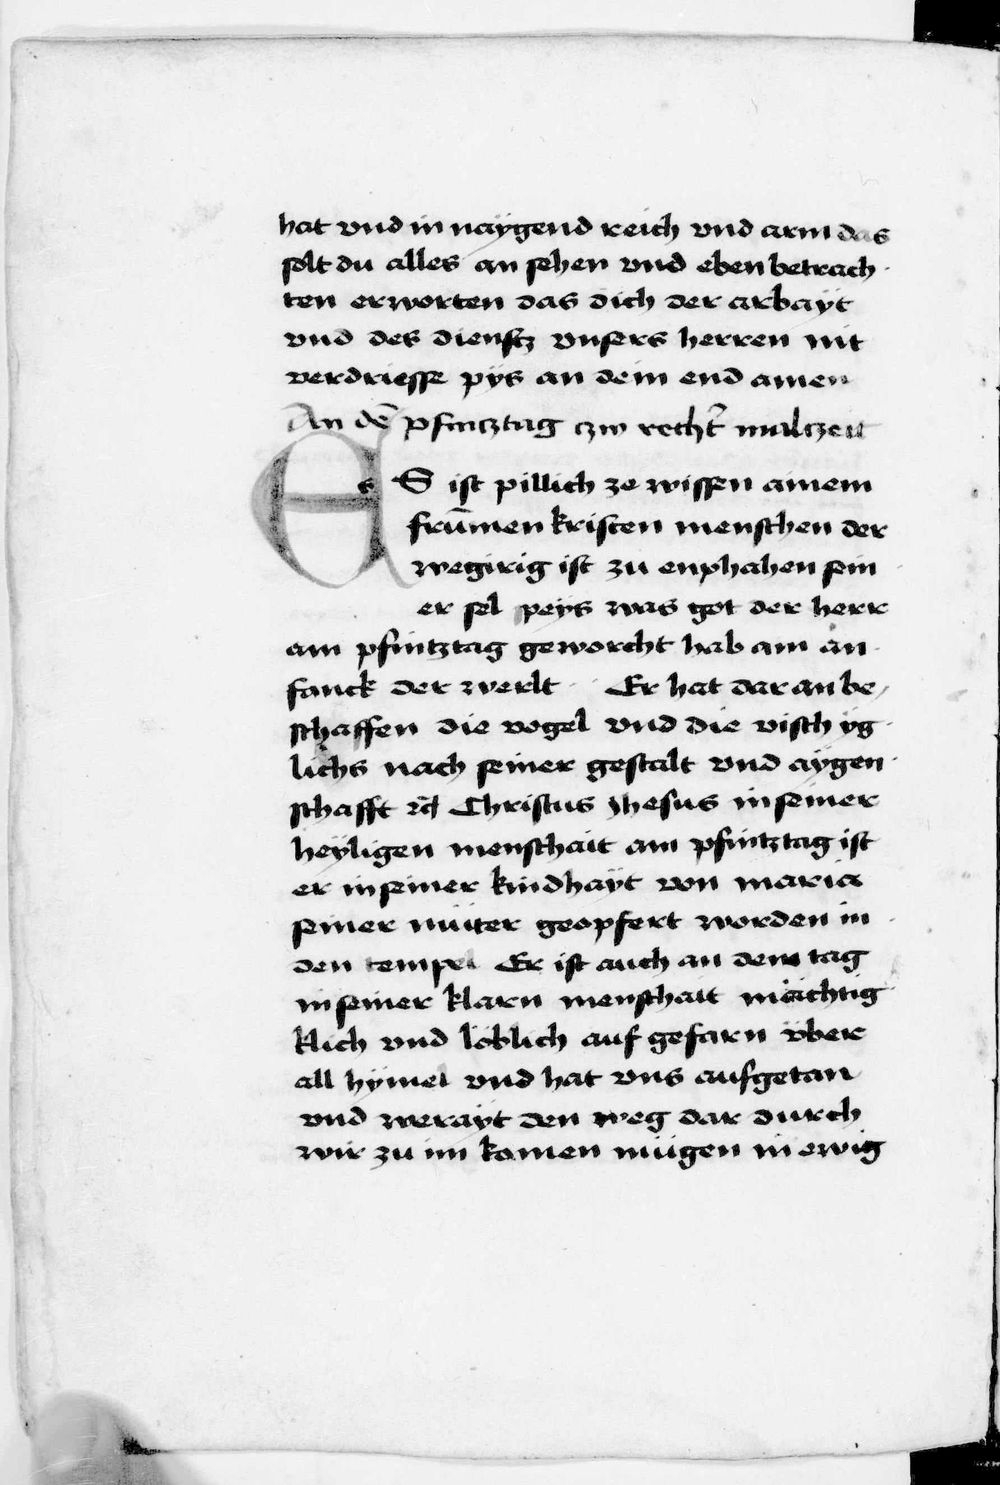 hat vnd in naÿgend reich vnd arm das
solt du alles an sehen vnd eben betrach
ten erworten das dich der arbaÿt
vnd des dienstz vnsers herren nit
verdriesse pÿs an dein end amen
An dē pfincztag czw recht̄ malczeit
ES ist pillich ze wissen ainem
frūmen kristen menschen der
wegirig ist zu enphahen sein
er sel speÿs was got der herr
am pfintztag geworcht hab am an
fanck der werlt Er hat dar an be
schaffen die vogel vnd die visch ÿg
lichs nach seiner gestalt vnd aÿgen
schafft ꝛc̄ Christus Jhesus in seiner
heÿligen menschait am pfintztag ist
er in seiner kindhaÿt von maria
seiner muter geopfert worden in
den tempel Er ist auch an dem tag
in seiner klarn menschait mächtig
klich vnd loblich auf gefarn vber
all hÿmel vnd hat vns aufgetan
vnd weraÿt den weg dar durch
wir zu im komen mügen in ewig